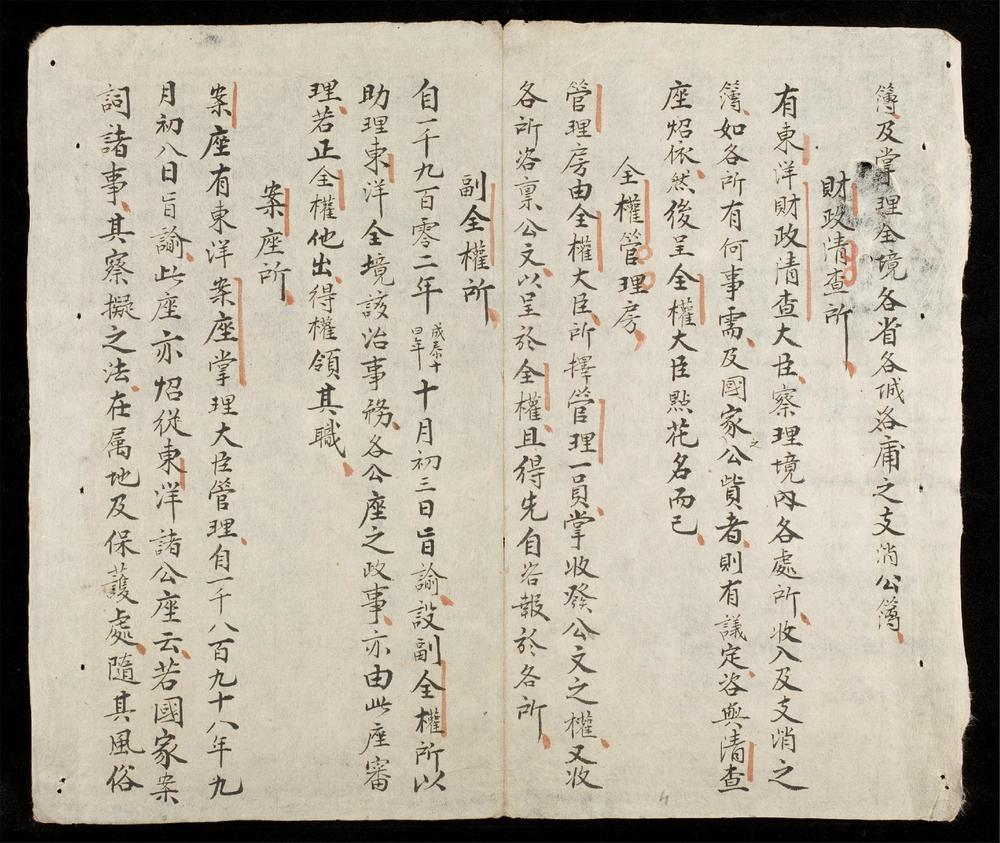 簿及掌理全境各省各城各庸之支消公簿
財政清查所
有東洋財政清查大臣察理境內各處所收入及支消之
簿如各所有何事需及國家之公貲者則有議定咨與清查
座炤依然後呈全權大臣點花名而已
全權管理房
管理房由全權大臣所擇管理一員掌收發公文之權又收
各所咨稟公文以呈於全權且得先自咨報於各所
副全權所
自一千九百零二年成泰十四年十月初三日旨諭設副全權所以
助理東洋全境該治事務各公座之政事亦由此座審
理若正全權他出得權領其職
案座所
案座有東洋案座掌理大臣管理自一千八百九十八年九
月初八日旨諭此座亦炤從東洋諸公座云若國家案
詞諸事其察擬之法在属地及保護處隨其風俗